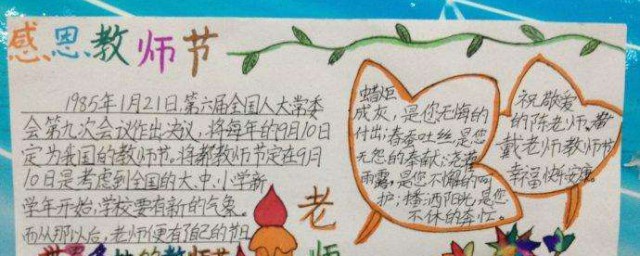 感恩教师节
1985年1月21日,第六届全国人大常委
会第九次会议作出决议,将每年的9月10日
定为我国的教师节,将都教师节定在9月
10日是考虑到全国的大、中、小学新
学年开始,学校要有新的气象。
而从那以后,老师便有了自己的节日
蜡炬
成灰,是你无悔的
付出;春蚕吐丝是您
无怨的奉献;
雨露,是您不懈的呵
护;播洒阳光是您
不休的奔忙。
祝敬爱
的陈老师、戴
老师教师节
幸福快
老
师
的教师节